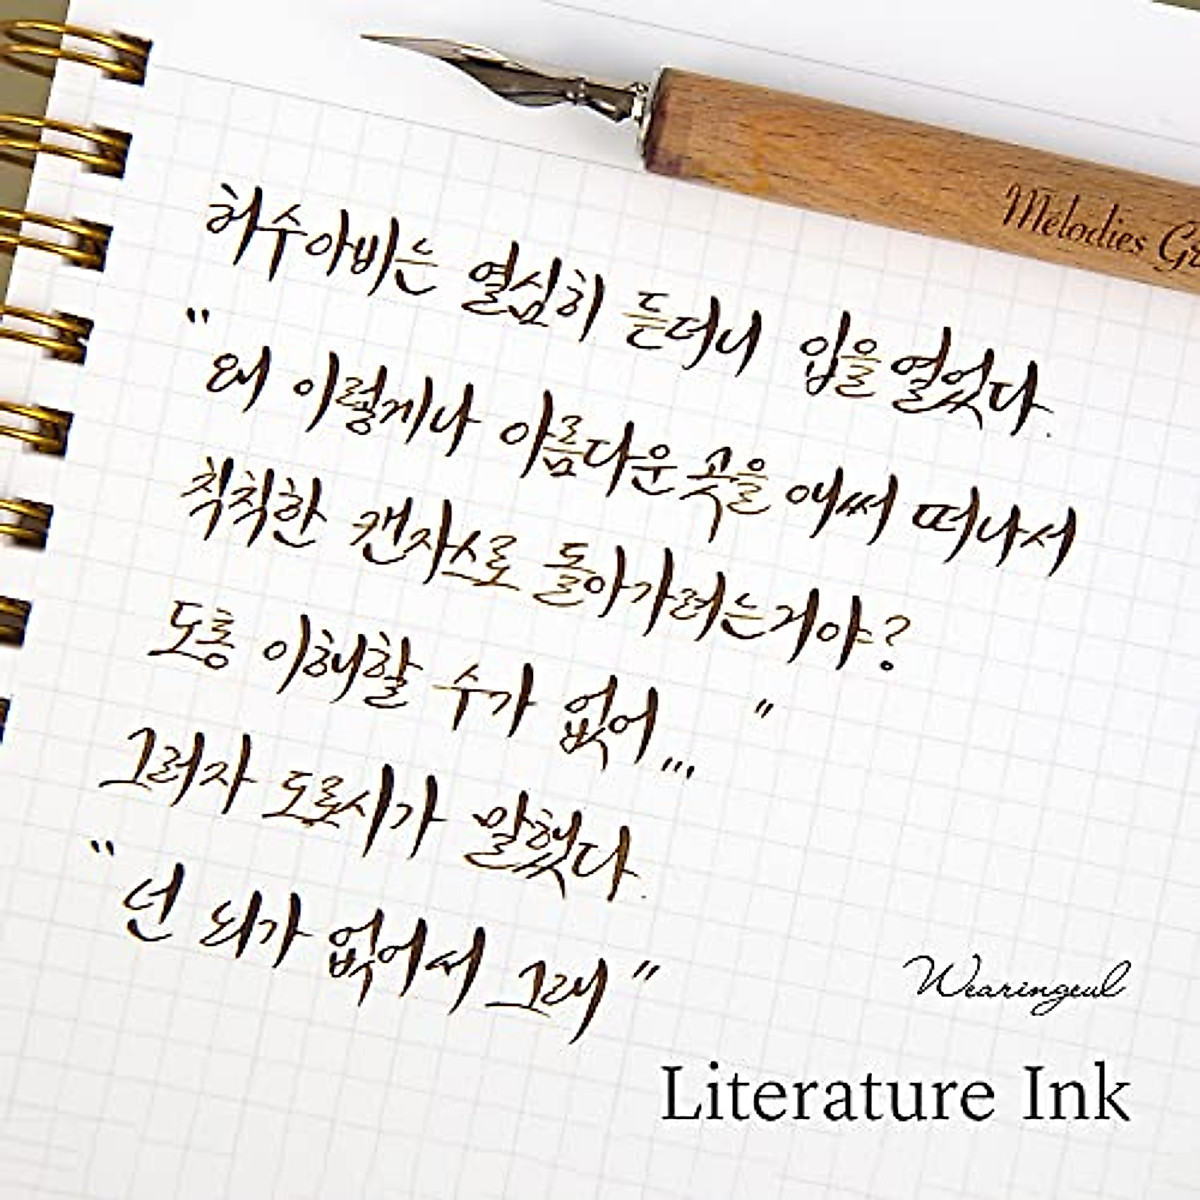 Melodies Gi
허수아비는 열심히 듣더니 입을 열었다.
"왜 이렇게나 아름다운 곳을 애써 떠나서
칙칙한 캔자스로 돌아가려는거야?
도통 이해할 수가 없어... "
그러자 도로시가 말했다.
"넌 뇌가 없어서 그래"
Wearingeul
Literature Ink